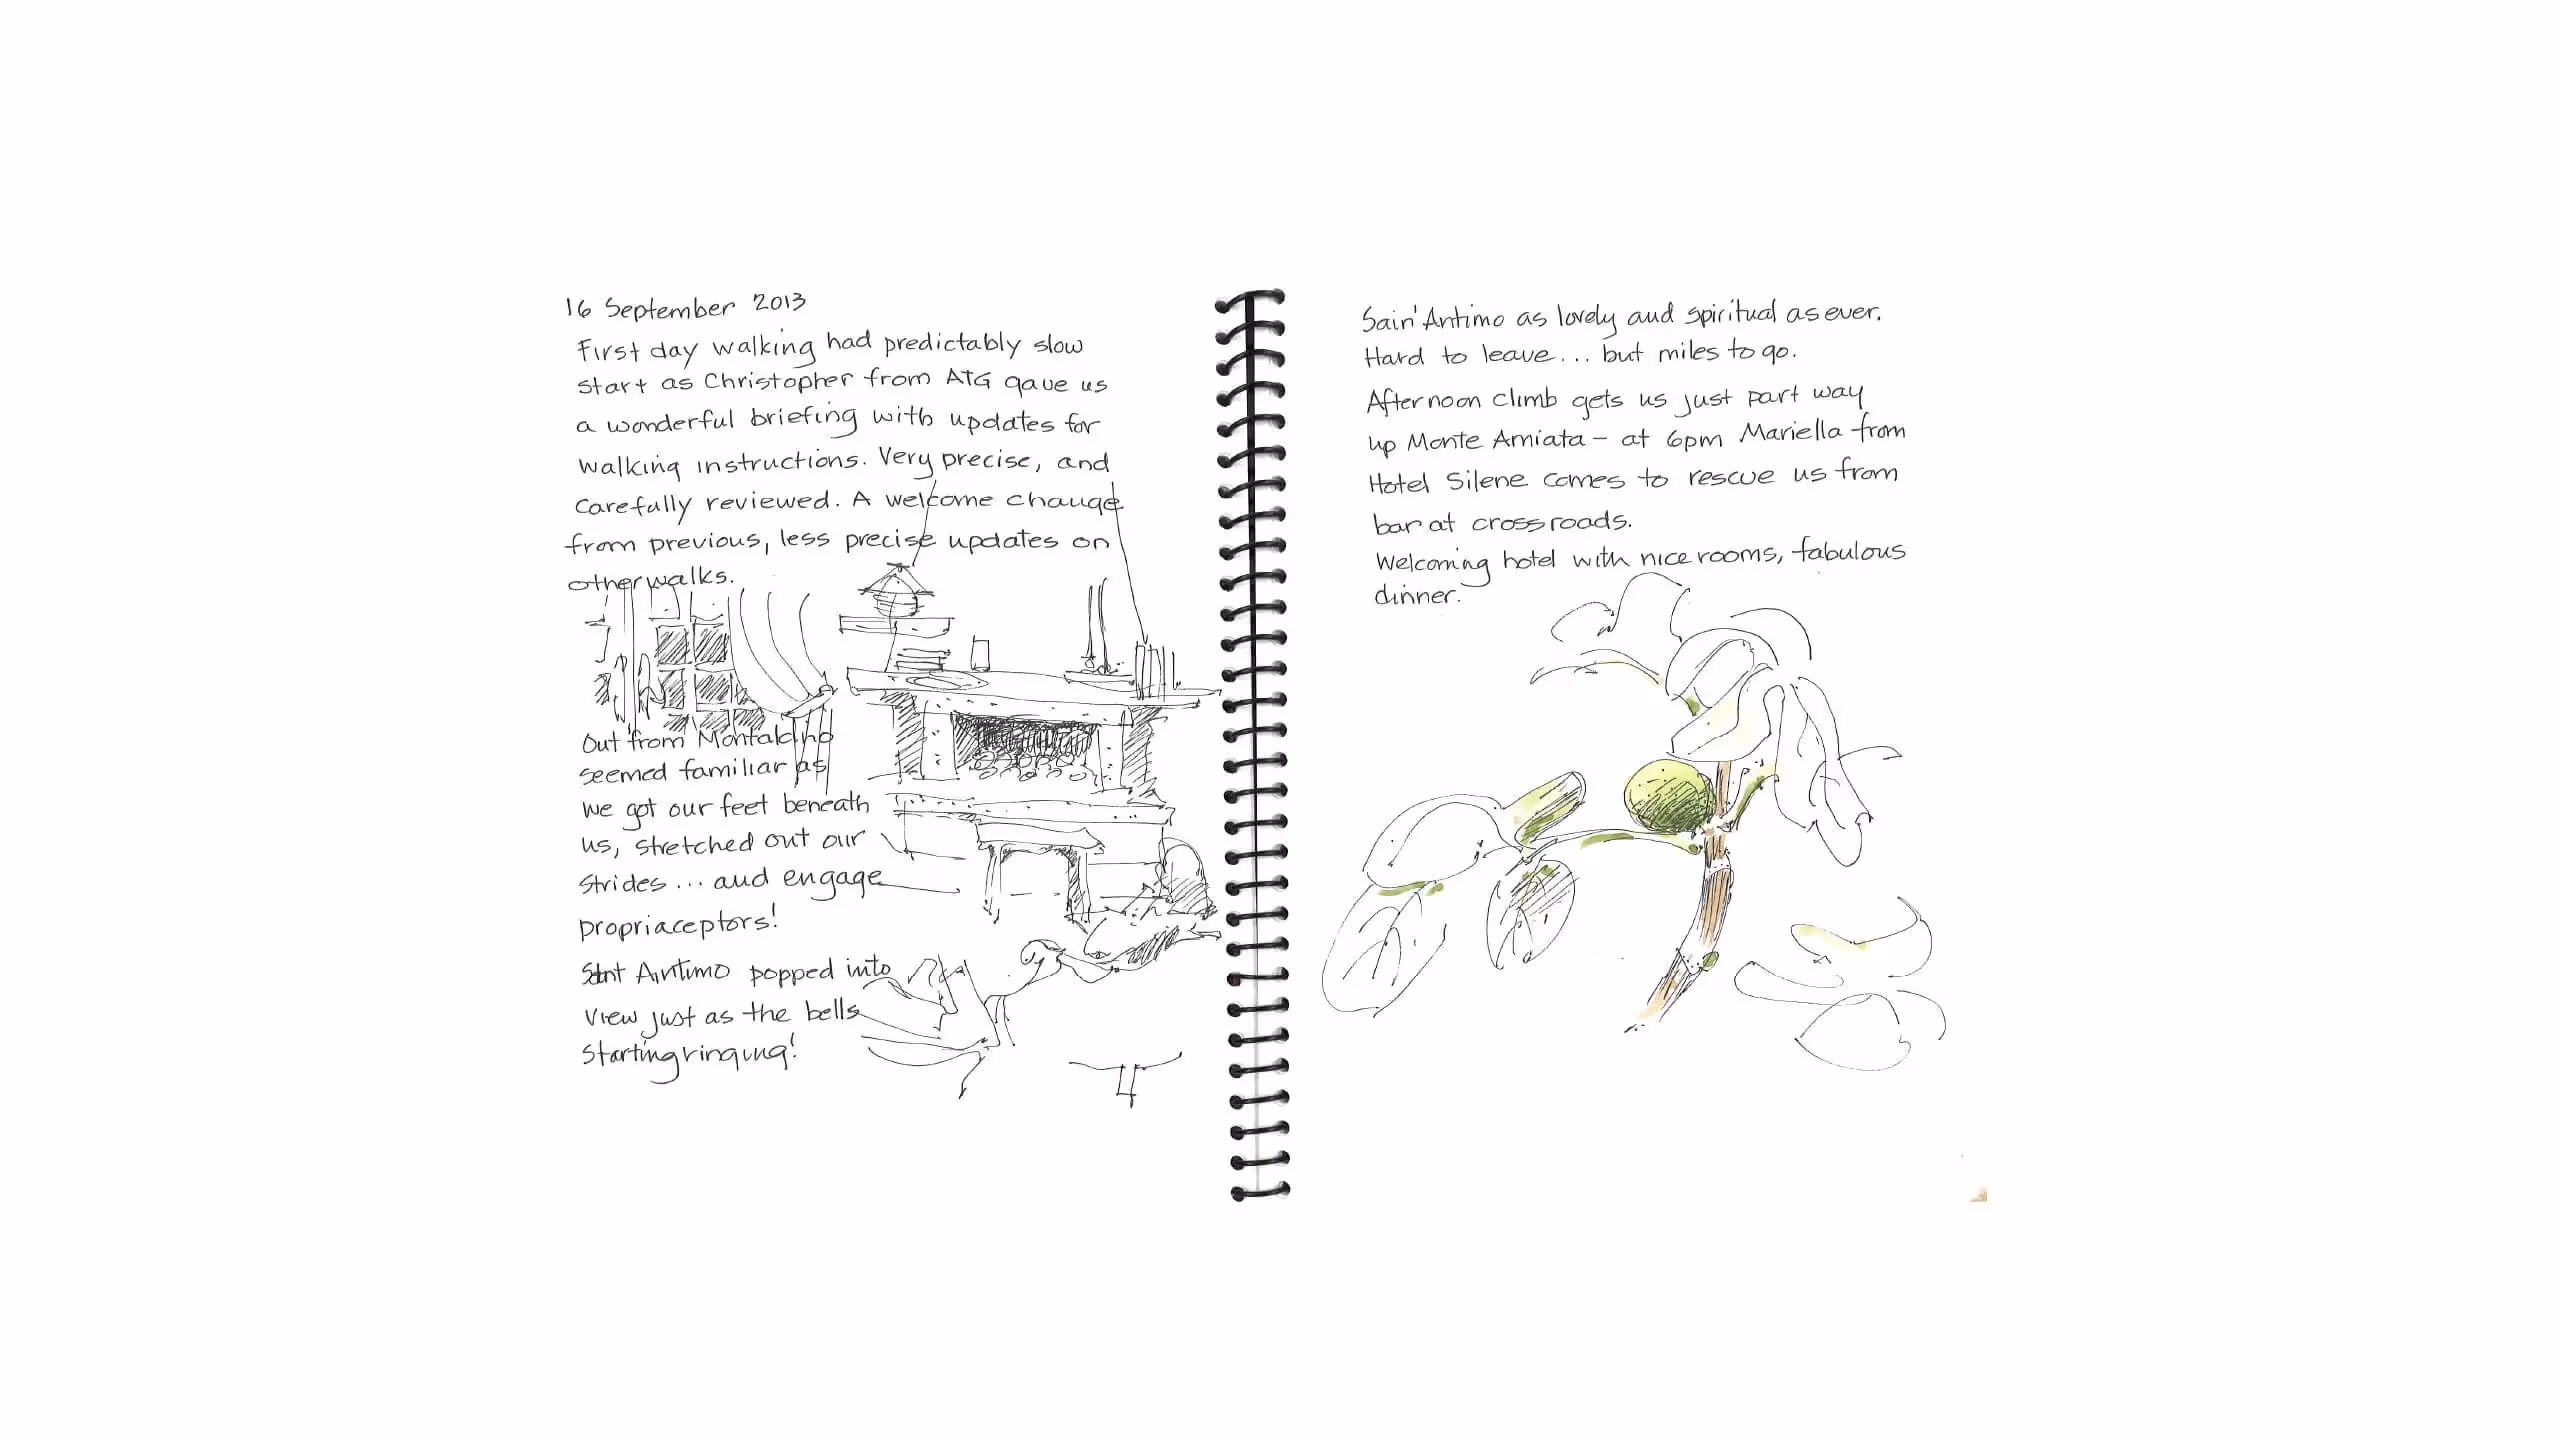 16 September 2013
First day walking had predictably slow
start as Christopher from ATG gave us
a wonderful briefing with updates for
walking instructions. Very precise, and
carefully reviewed. A welcome change
from previous, less precise updates on
other walks.
Out from Montalcino
seemed familiar as
we got our feet beneath
us, stretched out our
strides... and engage
propriaceptors!
Sant Antimo popped into
view just as the bells
starting ringing!
Sain'Antimo as lovely and spiritual as ever.
Hard to leave... but miles to go.
Afternoon climb gets us just part way
up Monte Amiata - at 6pm Mariella from
Hotel Silene comes to rescue us from
bar at crossroads.
Welcoming hotel with nice rooms, fabulous
dinner.